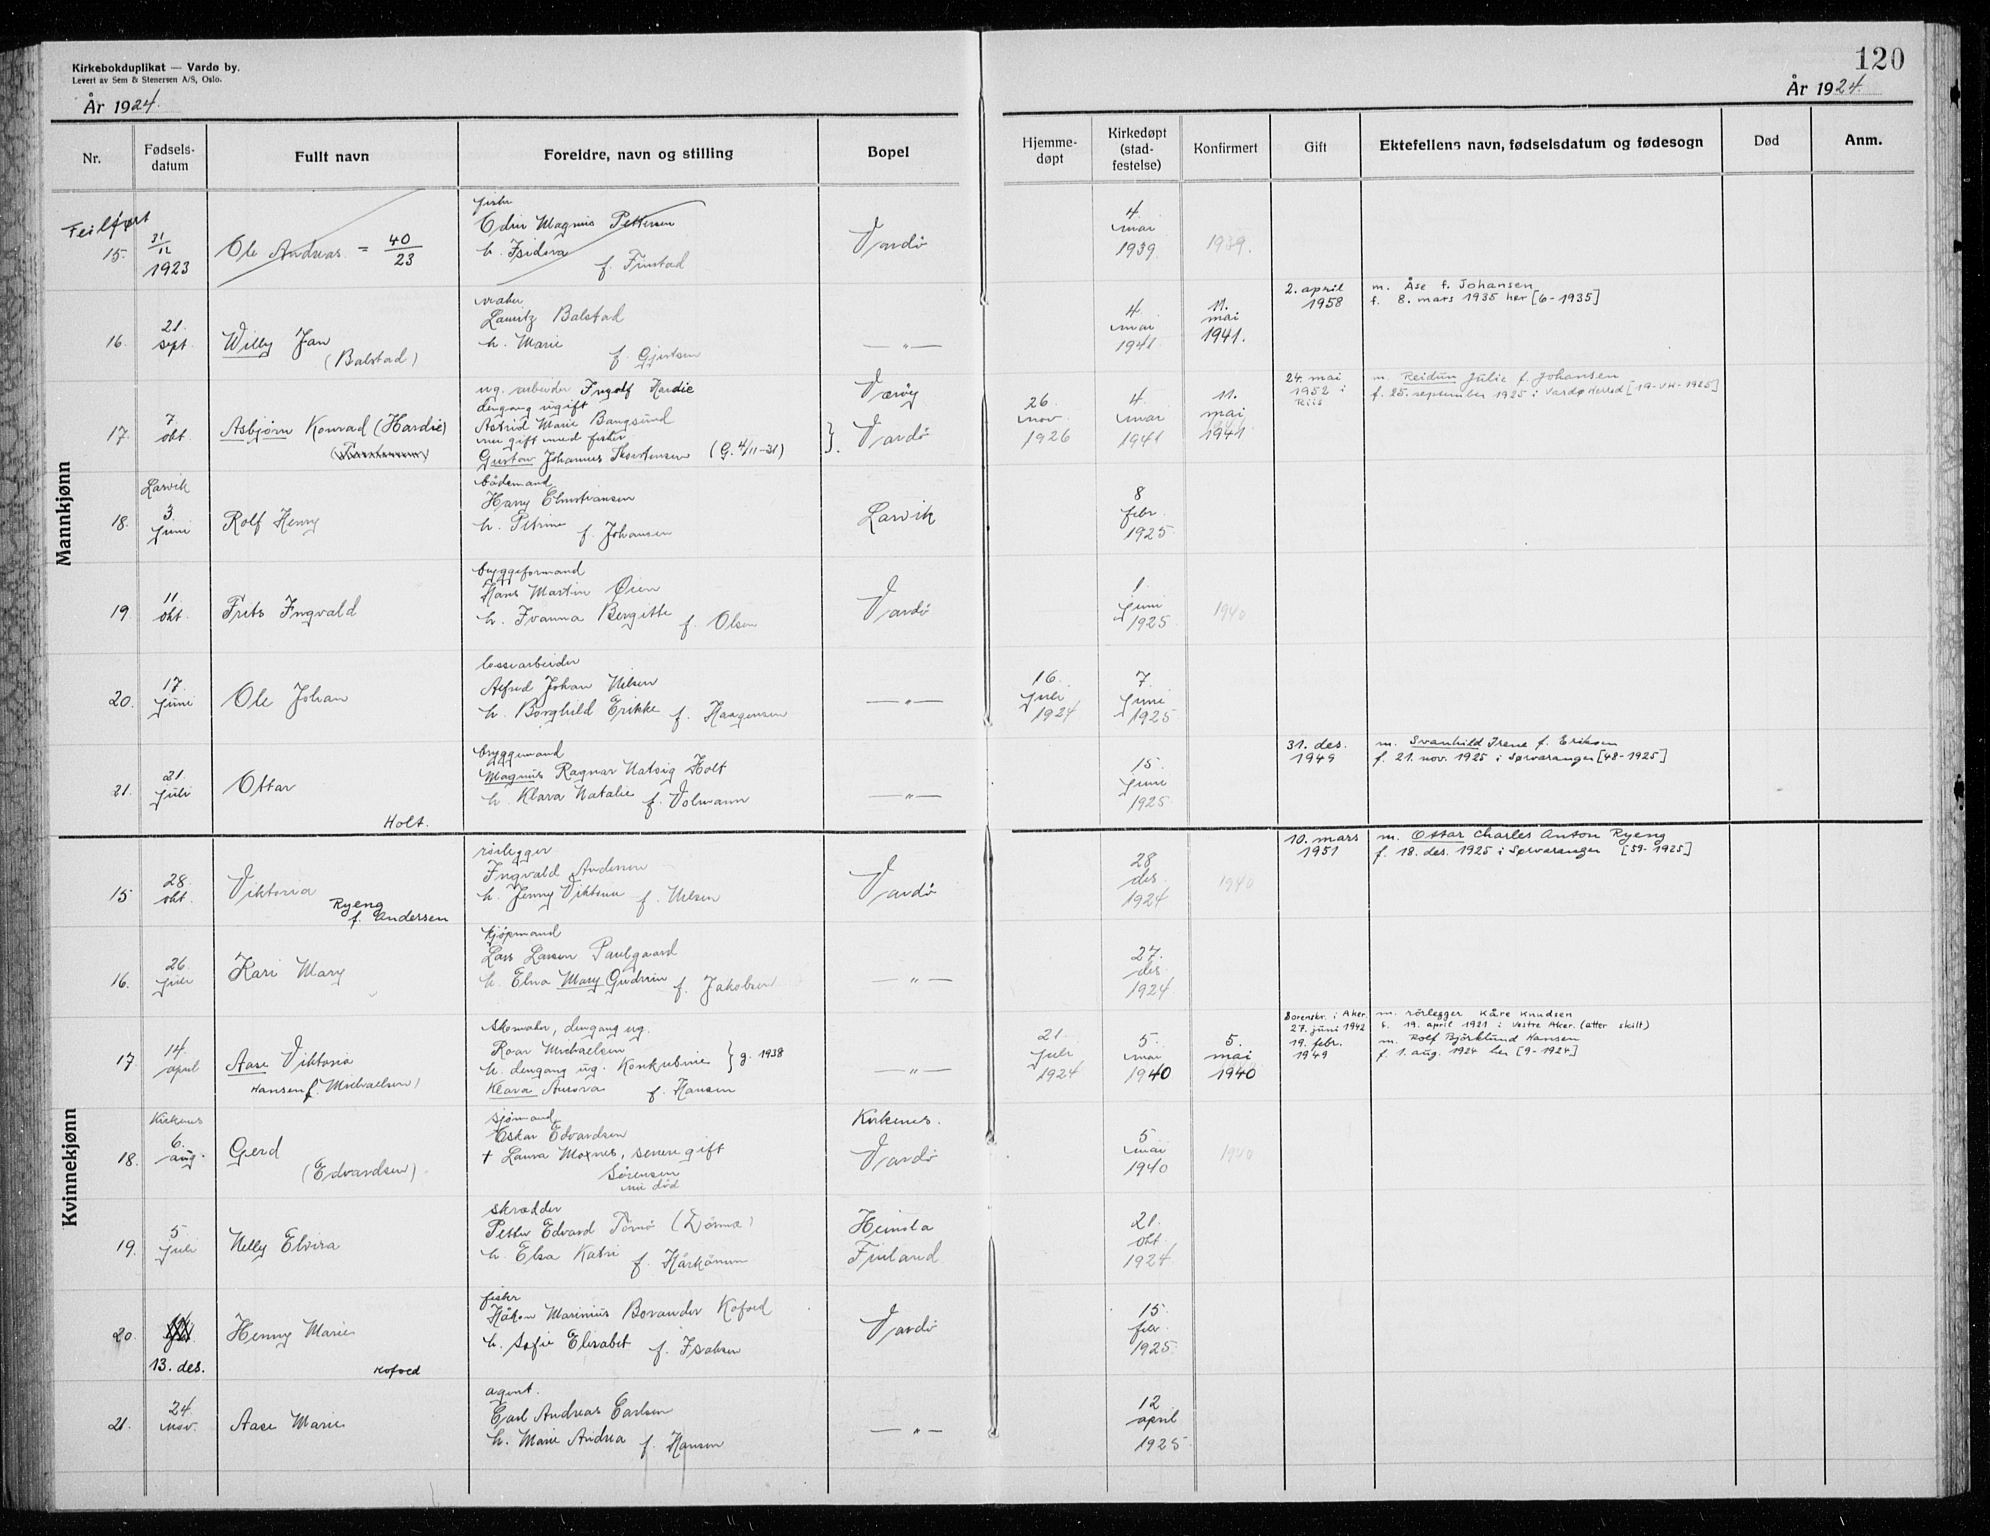 Kirkebokduplikat — Vardø by.
Levert av Sem & Stenersen A/S, Oslo.
År 1924.
120
År 1924.
Nr.
Fødsels-
datum
Fullt navn
Foreldre, navn og stilling
Bopel
Hjemme-
døpt
Kirkedøpt
(stad-
festelse)
Konfirmert
Gift
Ektefellens navn, fødselsdatum og fødesogn
Død
Anm.
Mannkjønn
Feilført
15.
31/12
1923
Ole Andreas = 40/23
fisker
Odin Magnus Pettersen
h. Isidora
f. Finstad
Vardö
4.
mai
1939
1939.
16.
21.
sept.
Willy Jan
(Balstad)
vraker
Lauritz Balstad
h. Marie
f. Gjertsen
—〃—
4.
mai
1941
11.
mai
1941.
2. april
1958
m. Åse f. Johansen
f. 8. mars 1935 her [6-1935]
17.
7
okt.
Asbjørn Konrad (Hardie)
ug. arbeider Ingolf Hardie
dengang ugift
Astrid Marie Bangsund
nu gift med fisker
Gustav Johannes Thorstensen (G. 4/11-31)
Værøy
Vardö
26
nov.
1926
4.
mai
1941
11.
mai
1941
24. mai
1952 i
Riis
m. Reidun Julie f. Johansen
f. 25. september 1925 i Vardø herred [19-VH-1925]
18.
Larvik
3.
juni
Rolf Henny
bådsmand
Harry Christiansen
h. Petrine
f. Johansen
Larvik
8
febr.
1925
19
11
okt.
Frits Ingvald
bryggeformand
Hans Martin Øien
h. Ivanna Bergitte f. Olsen
Vardö
1.
juni
1925
1940
20.
17.
juni
Ole Johan
lossearbeider
Alfred Johan Nilsen
h. Borghild Erikke f. Haagensen
—〃—
16.
juli
1924
7.
juni
1925
21.
21.
juli
Ottar
Holt.
bryggemand
Magnus Ragnar Natvig Holt
h. Klara Natalie f. Volmann
—〃—
15.
juni
1925
31. des.
1949
m. Svanhild Irene f. Eriksen
f. 21. nov. 1925 i Sørvaranger [48-1925]
Kvinnekjønn
15
28.
okt.
Viktoria
Ryeng
f. Andersen
rørlegger
Ingvald Andersen
h. Jenny Viktoria f. Nilsen
Vardö
28
des.
1924
1940
10. mars
1951
m. Ottar Charles Anton Ryeng
f. 18. des. 1925 i Sørvaranger [59-1925]
16.
26.
juli
Kari Mary
kjøpmand
Lars Larsen Paulgaard
h. Elna Mary Gudrun f. Jakobsen
—〃—
27.
des.
1924
17
14.
april
Aase Viktoria
Hansen f. Michaelsen)
skomaker, dengang ug.
Roar Michaelsen
h. dengang ug. Konkubine } g. 1938
Klara Aurora f. Hansen
—〃—
21.
juli
1924
5.
mai
1940
5.
mai
1940
Sorenskr. i Aker
27. juni 1942
19. febr.
1949
m. rörlegger Kåre Knudsen
f. 19. april 1921 i Vestre Aker. (atter skilt)
m. Rolf Björklund Hansen
f. 1. aug. 1924 her [9-1924]
18.
Kirkenes
6.
aug.
Gerd
(Edvardsen)
sjømand
Oskar Edvardsen
† Laura Moxnes, senere gift
Sörensen
nu död
Kirkenes.
Vardö
5
mai
1940
1940
19.
5
juli
Nelly Elvira
skrædder
Petter Edvard Törmö (Törmä)
h. Elsa Katri f. Kärkönen
Heinola
Finland
21.
okt.
1924
20.
13. des.
Henny Marie
Kofoed
fisker
Håkon Marinius Bovander Kofoed
h. Sofie Elisabet f. Isaksen
Vardö
15.
febr.
1925
21.
24.
nov.
Aase Marie
agent.
Carl Andreas Carlsen
h. Marie Andrea f. Hansen
—〃—
12
april
1925